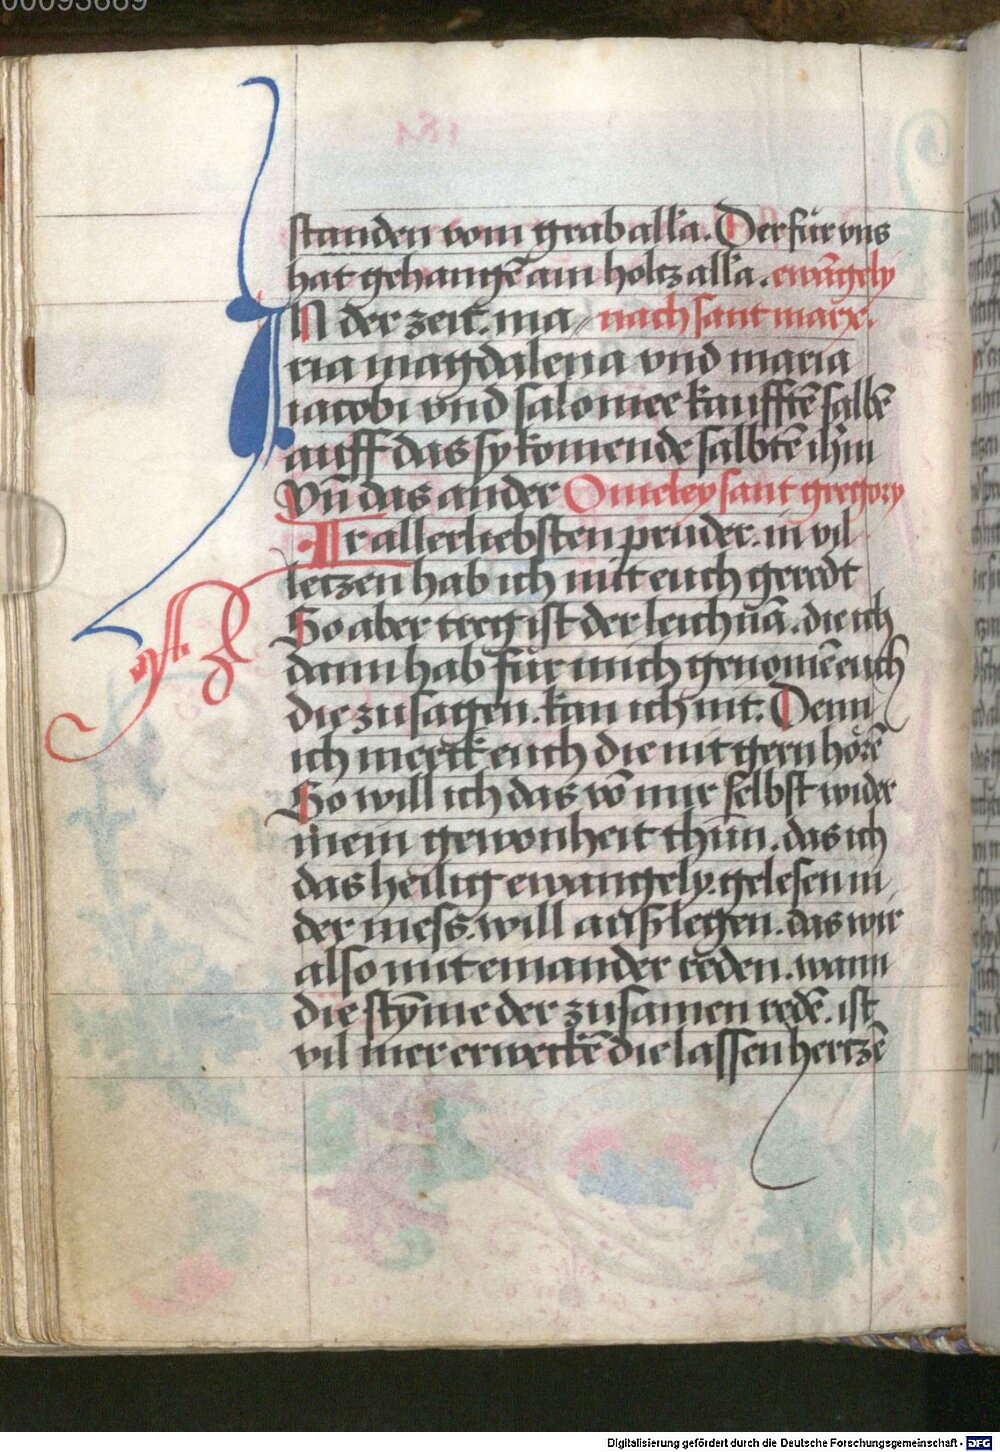 00093669
standen vom grab all'a. Der für vns
hat gehangē am holtz all'a. ewāgely
IN der zeit. ma⸗ nach sant marx.
ria magdalena vnd maria
iacobi vnd salomee kaufftē salbē
auff das sy komende salbtē ihm̄
Vn̄ das ander Omeley sant gregory
Ir allerliebsten pruder. in vil
letzen hab ich mit euch geredt
So aber treg ist der leichnā. die ich
dann hab für mich genomē euch
die zu sagen. kan ich nit. Denn
ich merck euch die nit gern hörē
So will ich das vō mir selbst wider
mein gewonheit thun. das ich
das heilig ewangely. gelesen in
der mess. will außlegen. das wir
also mit einander reden. wann
die stȳme der zusamen redē. ist
vil mer erweckē die lassen hertzē
Digitalisierung gefördert durch die Deutsche Forschungsgemeinschaft - DFG